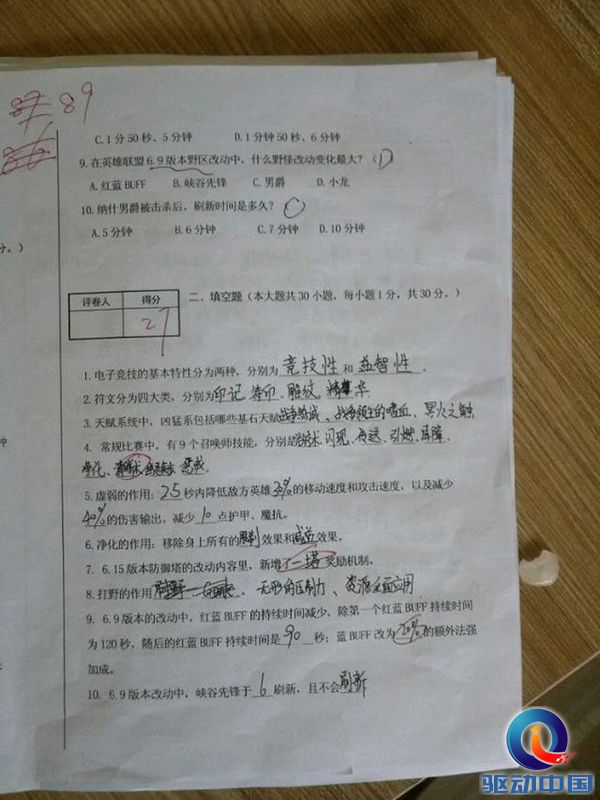 89
C.1分50秒、5分钟 D.1分钟50秒、6分钟
9.在英雄联盟6.9版本野区改动中,什么野怪改动变化最大?(D)
A.红蓝BUFF B.峡谷先锋 C.男爵 D.小龙
10.纳什男爵被击杀后,刷新时间是多久?(C)
A.5分钟 B.6分钟 C.7分钟 D.10分钟
分。)
评卷人 得分
27
二、填空题(本大题共30小题,每小题1分,共30分。)
1.电子竞技的基本特性分为两种,分别为竞技性和益智性.
2.符文分为四大类,分别为印记、雕纹、精华
3.天赋系统中,凶猛系包括哪些基石天赋战争热诚、战争领主的嗜血、冥火之触
4. 常规比赛中,有9个召唤师技能,分别是治疗术、闪现、传送、引燃、屏障、
净化、惩戒.
钟
5.虚弱的作用:2.5秒内降低敌方英雄30%的移动速度和攻击速度,以及减少
40%的伤害输出。减少10点护甲、魔抗。
6.净化的作用:移除身上所有的限制效果和减益效果。
7. 6.15版本防御塔的改动内容里,新增了一塔奖励机制。
8.打野的作用 无形的压制力、资源全面应用
9. 6.9版本的改动中,红蓝BUFF的持续时间减少,除第一个红蓝BUFF持续时间
为120秒,随后的红蓝BUFF持续时间是90秒;蓝BUFF改为20%的额外法强
加成。
10. 6.9版本改动中,峡谷先锋于6刷新,且不会刷新
驱动中国